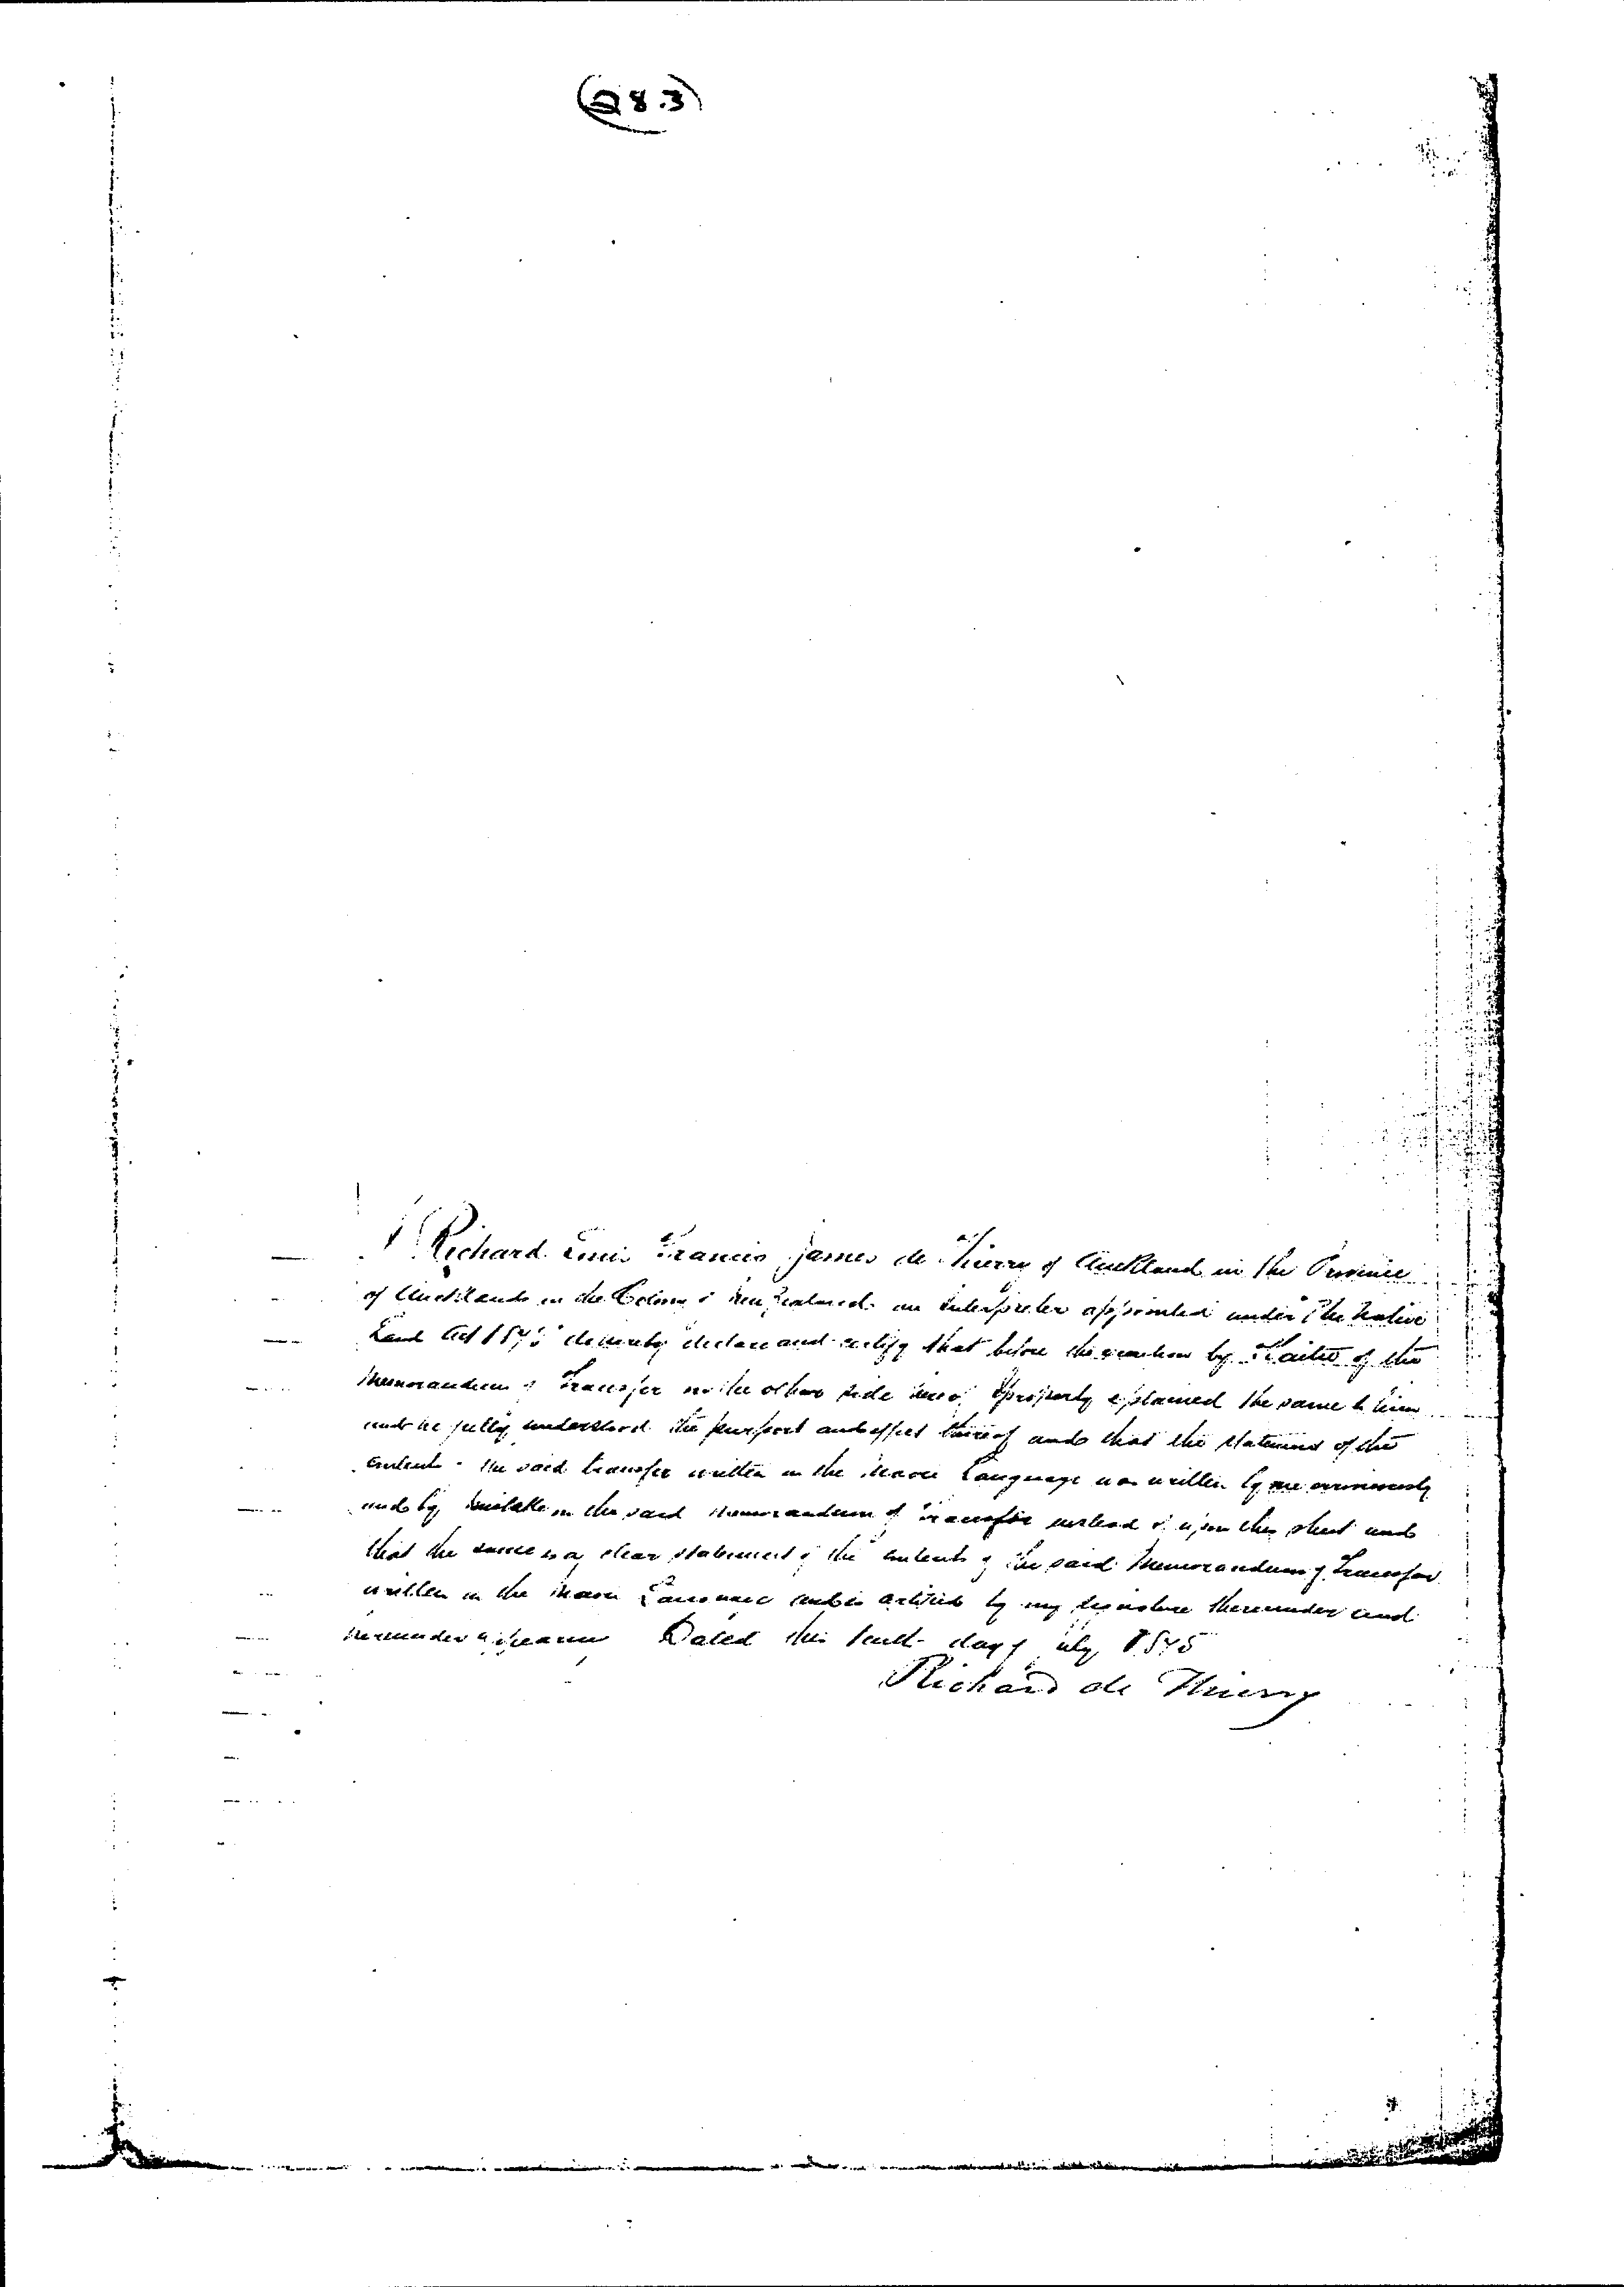 (28.3)
I Richard Louis Francis James de Thierry of Auckland in the Province
of Auckland in the Colony of New Zealand an Interpreter appointed under the Native
Land Act 1873 do hereby declare and certify that before the execution by of the
Memorandum of Transfer on the other side hereof I properly explained the same to him
and he fully understood the purport and effect thereof and that the statement of the
contents of the said transfer written in the Maori Language was written by me erroneously
and by mistake on the said Memorandum of Transfer instead of upon this sheet and
that the same is a clear statement of the contents of the said Memorandum of Transfer
written in the Maori Language and is certified by my signature thereunder and
hereunder appearing Dated this tenth day of July 1875
Richard de Thierry